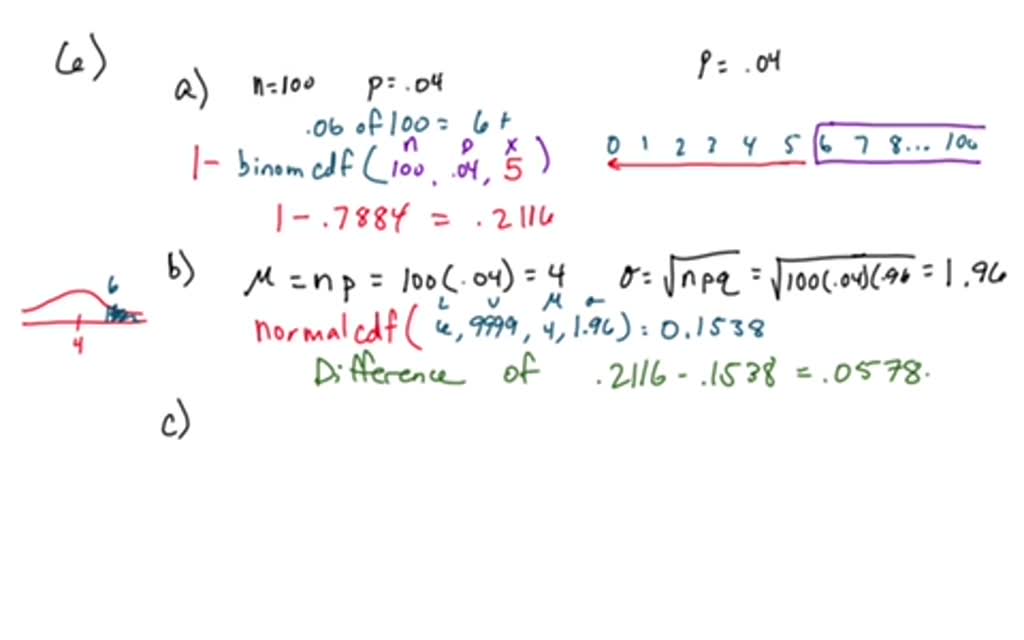 6)
a) n=100 p=.04 p=.04
.06 of 100 = 6+
n p x
1- binomcdf(100, .04, 5) 0 1 2 3 4 5 6 7 8... 100
1-.7884 = .2116
b) μ = np = 100(.04) = 4 σ=√npq = √100(.04)(.96 = 1.96
6
L U μ σ
normalcdf(6, 9999, 4, 1.96) = 0.1538
4
Difference of .2116 - .1538 = .0578.
c)